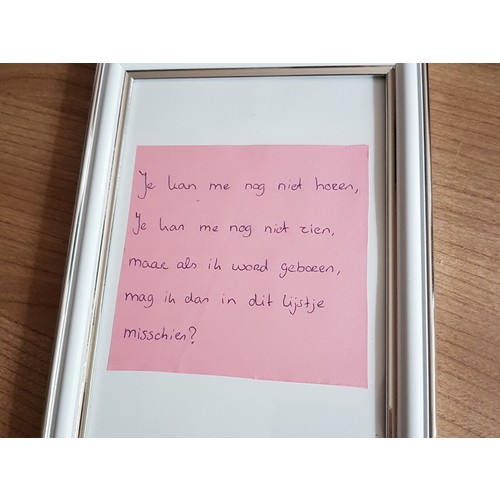 Je kan me nog niet horen,
Je kan me nog niet zien,
maar als ik word geboren,
mag ik dan in dit lijstje
misschien?